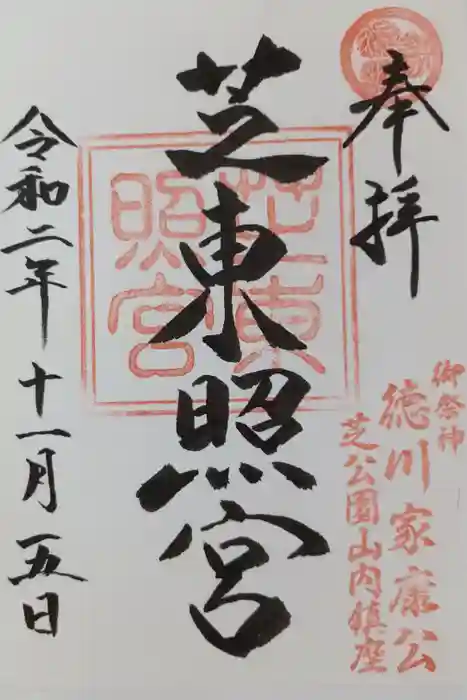 奉拝
御祭神
徳川家康公
芝公園山内鎮座
芝東照宮
芝東照宮
令和二年十一月一五日